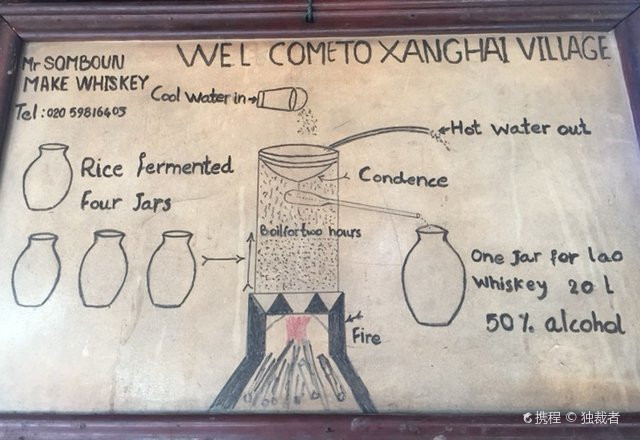 WELCOMETO XANGHAI VILLAGE
Mr SOMBOUN
MAKE WHISKEY
Tel: 020 59816403
Cool Water in
Hot Water out
Rice fermented
Four Jars
Condence
Boilfortwo hours
One Jar for lao
Whiskey 20 l
50% alcohol
Fire
携程 © 独裁者